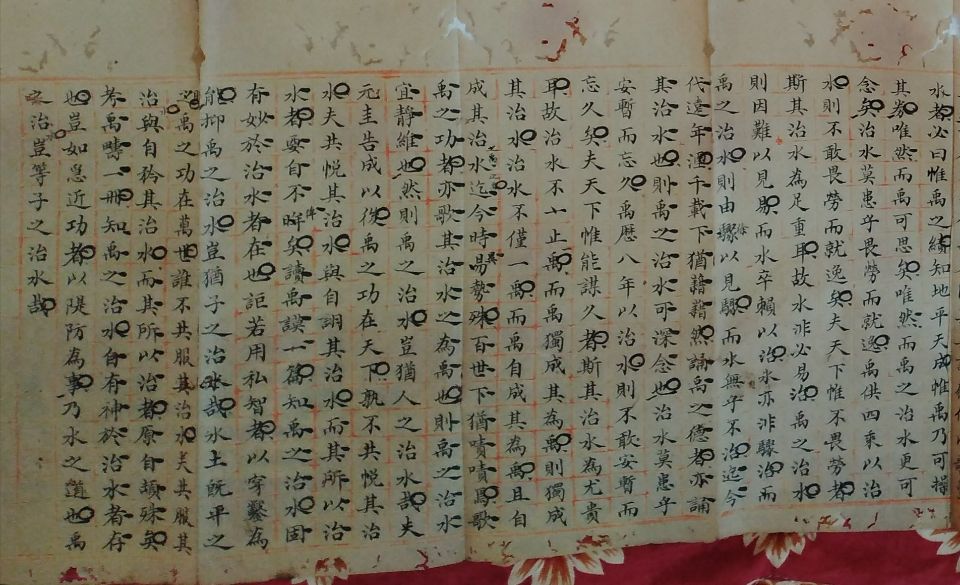 水者必曰惟禹之績知地平天成惟禹乃可操
其券唯然而禹可思矣唯然而禹之治水更可
念矣治水莫患乎畏勞而就逸禹供四乘以治
水則不敢畏勞而就逸矣夫天下惟不畏勞者
斯其治水為足重耳故水非必易治禹之治水
則因難以見易而水卒賴以治水亦非驟治而
禹之治水則由驟以見驟而水無乎不治迄今
代遠年運千載下猶藉藉然論禹之德者亦論
其治水也則禹之治水可深念也治水莫患乎
安暫而忘久禹歷八年以治水則不敢安暫而
忘久矣夫天下惟能謀久者斯其治水為尤貴
耳故治水不一止禹而禹獨成其為禹則獨成
其治水治水不僅一禹而禹自成其為禹且自
成其治水迄今時易勢殊百世下猶嘖嘖焉歌
禹之功者亦歌其治水之為禹也則禹之治水
宜靜維也然則禹之治水豈猶人之治水哉夫
元圭告成以後禹之功在天下孰不共悅其治
水夫共悅其治水與自詡其治水而其所以治
水者要自不眸矣讀禹謨一篇知禹之治水固
有妙於治水者在也詎若用私智者以穿鑿為
能抑禹之治水豈猶子之治水哉水土既平之
禹之功在萬世誰不共服其治水夫共服其
治與自矜其治水而其所以治者原自頡殊矣
考禹疇一冊知禹之治水自有神於治水者存
也豈如急近功者以隄防為事乃水之道也禹
之治豈等子之治水哉